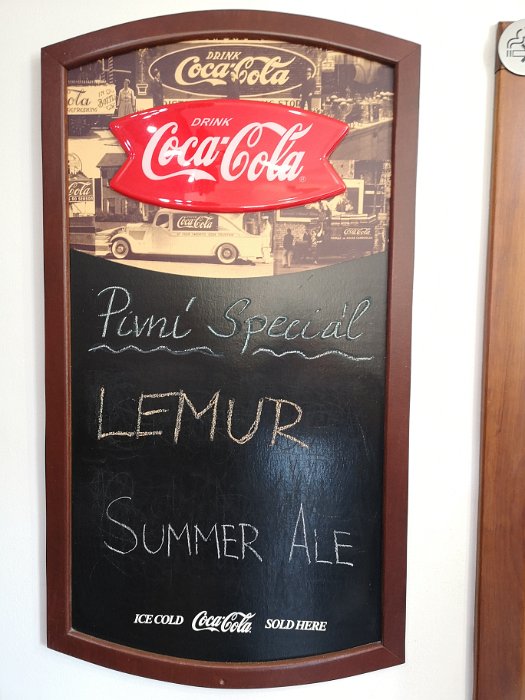 DRINK
Coca-Cola
DRINK
Coca-Cola
Coca-Cola
Pivní Speciál
LEMUR
SUMMER ALE
ICE COLD Coca-Cola SOLD HERE